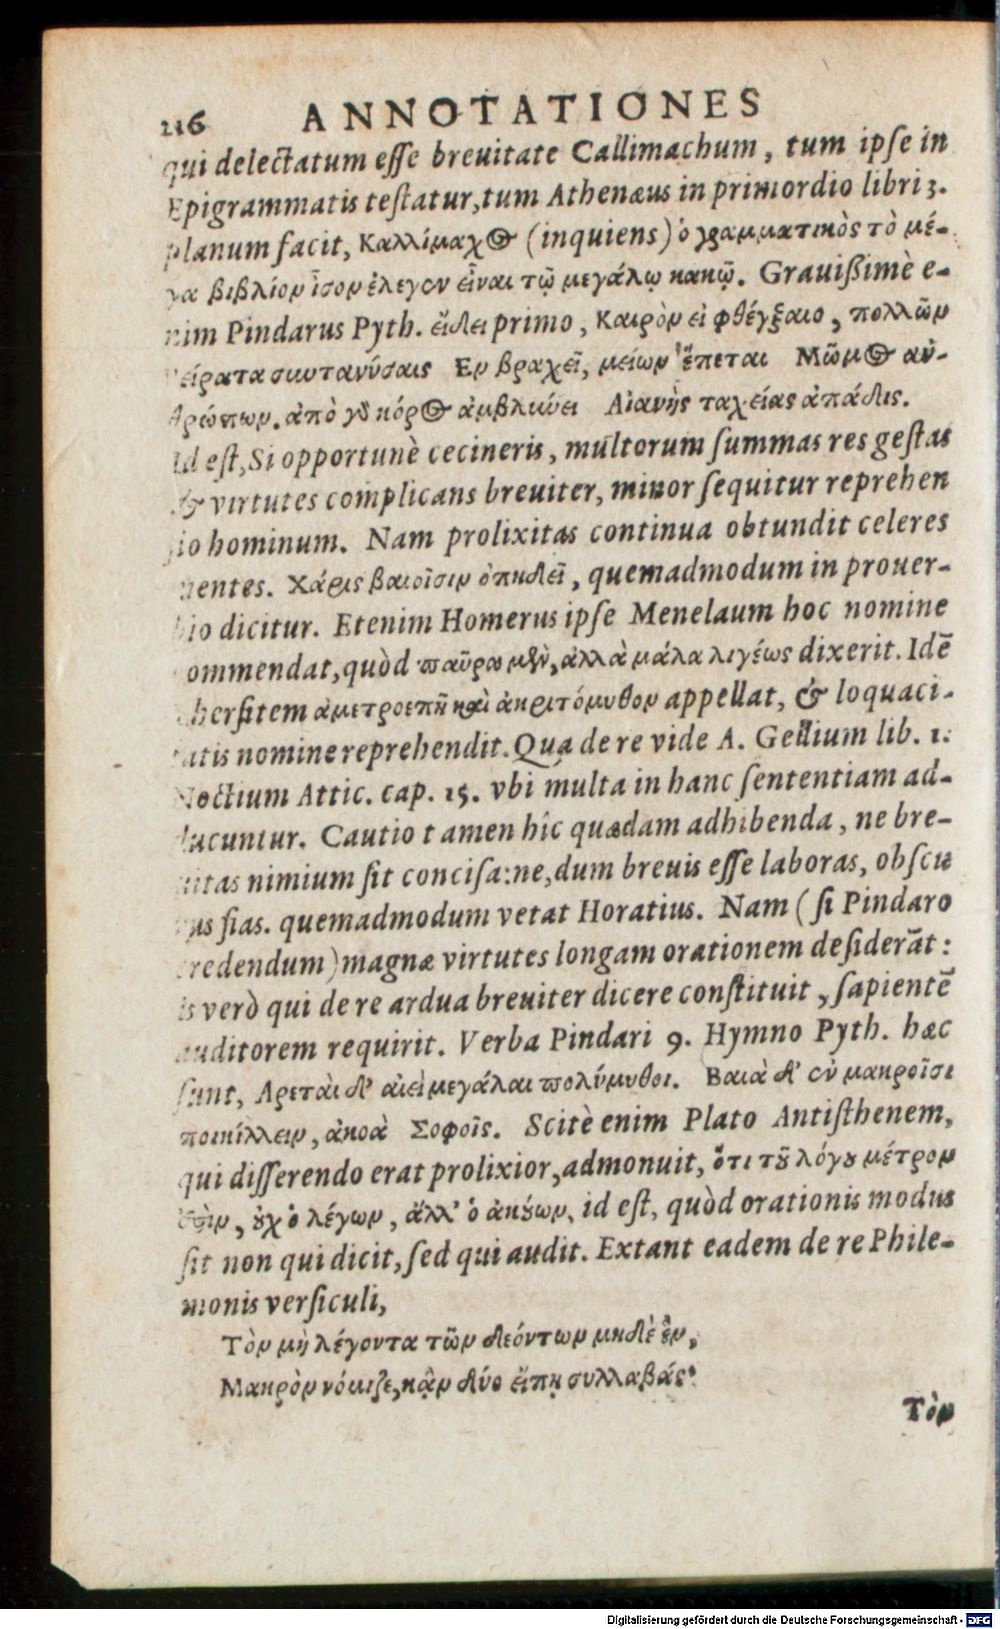 216 ANNOTATIONES
qui delectatum esse breuitate Callimachum, tum ipse in
Epigrammatis testatur, tum Athenæus in primordio libri 3.
planum facit, Καλλίμαχος (inquiens) ὁ γραμματικὸς τὸ μέ-
γα βιβλίον ἶσον ἔλεγεν εἶναι τῷ μεγάλῳ κακῷ. Grauißimè e-
nim Pindarus Pyth. εἴδει primo, Καιρὸν εἰ φθέγξαιο, πολλῶν
πείρατα συντανύσαις Ἐν βραχεῖ, μείων ἕπεται Μῶμος ἀν-
θρώπων. ἀπὸ γὰρ κόρος ἀμβλύνει Αἰανὴς ταχείας ἀπάδις.
Id est, Si opportunè cecineris, multorum summas res gestas
& virtutes complicans breuiter, minor sequitur reprehen
sio hominum. Nam prolixitas continua obtundit celeres
mentes. Χάρις βαιοῖσιν ὀπηδεῖ, quemadmodum in prouer-
bio dicitur. Etenim Homerus ipse Menelaum hoc nomine
commendat, quòd παῦρα μὲν, ἀλλὰ μάλα λιγέως dixerit. Idē
Thersitem ἀμετροεπῆ καὶ ἀκριτόμυθον appellat, & loquaci-
tatis nomine reprehendit. Qua de re vide A. Gellium lib. 1.
Noctium Attic. cap. 15. vbi multa in hanc sententiam ad-
ducuntur. Cautio tamen hîc quædam adhibenda, ne bre-
uitas nimium sit concisa: ne, dum breuis esse laboras, obscu
rus fias. quemadmodum vetat Horatius. Nam (si Pindaro
credendum) magnæ virtutes longam orationem desiderāt:
is verò qui de re ardua breuiter dicere constituit, sapientē
auditorem requirit. Verba Pindari 9. Hymno Pyth. hæc
sunt, Ἀρεταὶ δ' αἰεὶ μεγάλαι πολύμυθοι. Βαιὰ δ' ἐν μακροῖσι
ποικίλλειν, ἀκοὰ Σοφοῖς. Scitè enim Plato Antisthenem,
qui disserendo erat prolixior, admonuit, ὅτι τοῦ λόγου μέτρον
ἐστὶν, οὐχ ὁ λέγων, ἀλλ' ὁ ἀκούων, id est, quòd orationis modus
sit non qui dicit, sed qui audit. Extant eadem de re Phile-
monis versiculi,
Τὸν μὴ λέγοντα τῶν δεόντων μηδὲ ἓν,
Μακρὸν νόμιζε, κἂν δύο εἴπῃ συλλαβάς·
Τὸν
Digitalisierung gefördert durch die Deutsche Forschungsgemeinschaft - DFG